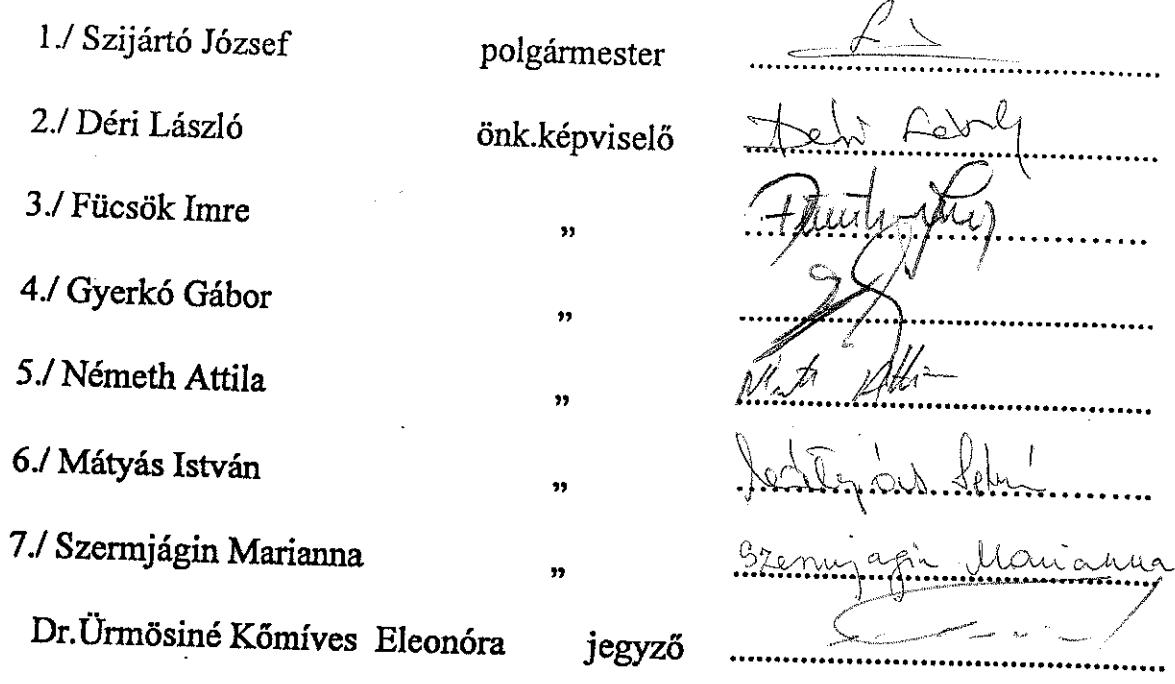 1./ Szijártó József polgármester ........................................
2./ Déri László önk.képviselő ........................................
3./ Fücsök Imre „ ........................................
4./ Gyerkó Gábor „ ........................................
5./ Németh Attila „ ........................................
6./ Mátyás István „ ........................................
7./ Szermjágin Marianna „ Szermjagin Marianna
Dr.Ürmösiné Kőmíves Eleonóra jegyző ........................................